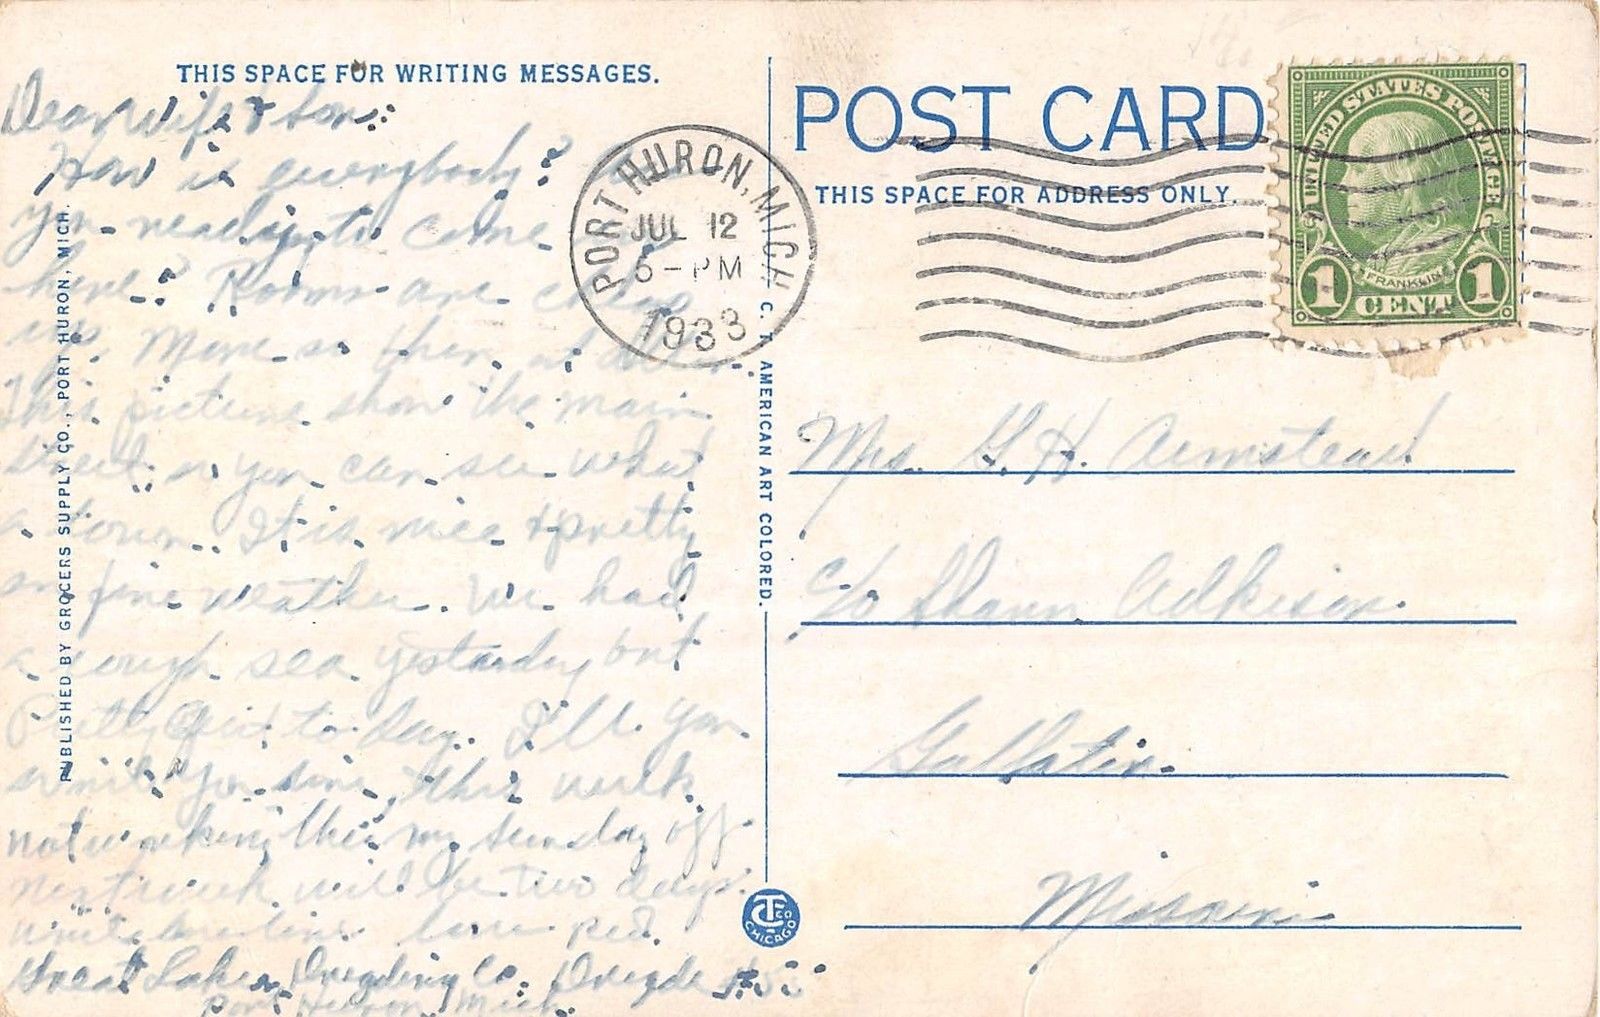 THIS SPACE FOR WRITING MESSAGES.
Dear Wife & Son:
How is everybody? are
you ready to come
here? Rooms are cheap
This picture show the main
street so you can see what
a town. It is nice & pretty
in fine weather. We had
a rough sea yesterday but
Pretty to day. I'll
this week
not working this my Sunday off
next week will be two days
write love Red.
Great Lakes Dredging Co. Dredge
Port Huron, Mich.
PUBLISHED BY GROCERS SUPPLY CO., PORT HURON, MICH.
C. T. AMERICAN ART COLORED.
CTCo CHICAGO
PORT HURON, MICH
JUL 12
PM
1933
POST CARD
THIS SPACE FOR ADDRESS ONLY.
UNITED STATES POSTAGE
FRANKLIN
1 CENT 1
Mrs. G. H. Armstead
c/o Shann Adkison
Gallatin
Missouri